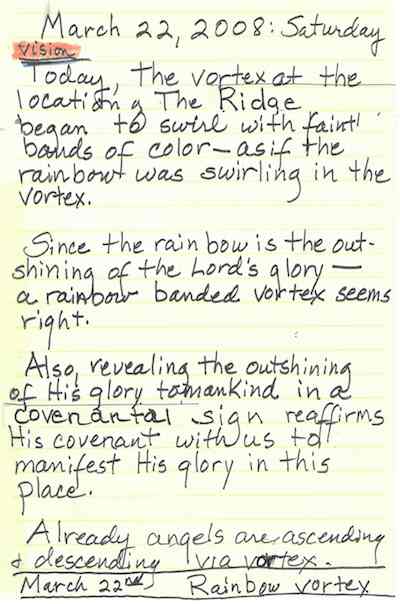 March 22, 2008: Saturday
vision
Today, The vortex at the
location of The Ridge
began to swirl with faint
bands of color—as if the
rainbow was swirling in the
vortex.
Since the rainbow is the out-
shining of the Lord's glory—
a rainbow banded vortex seems
right.
Also, revealing the outshining
of His glory to mankind in a
covenantal sign reaffirms
His covenant with us to
manifest His glory in this
place.
Already angels are ascending
& descending via vortex.
March 22nd Rainbow vortex